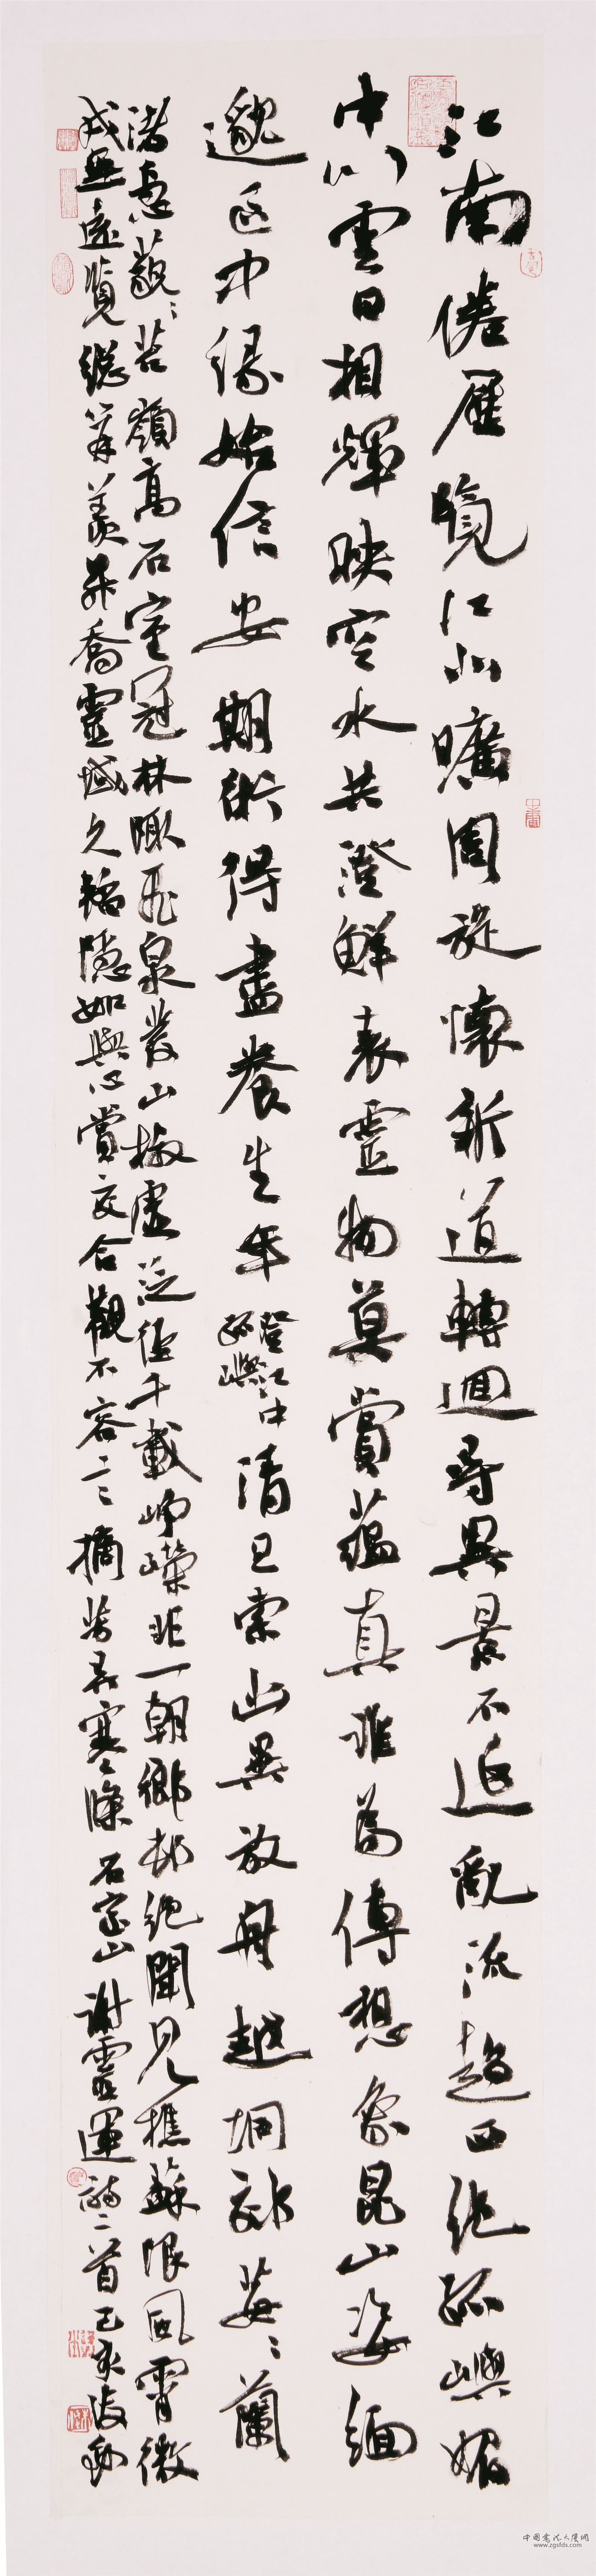 江南倦歷覽江北曠周旋懷新道轉迴尋異景不延亂流趨正絕孤嶼媚
中川雲日相輝映空水共澄鮮表靈物莫賞蘊真誰為傳想象昆山姿緬
邈區中緣始信安期術得盡養生年登江中孤嶼清旦索幽異放舟越坰郊莓〻蘭
渚急藐〻苔嶺高石室冠林陬飛泉發山椒虛泛徑千載崢嶸非一朝鄉邨絕聞見樵蘇限風霄微
戎無遠覽總笄羨升喬靈域久韜隱如與心賞交合觀不容言摘芳弄寒條 石室山 謝靈運詩二首己亥
中国书法大厦网
www.zgsfds.com